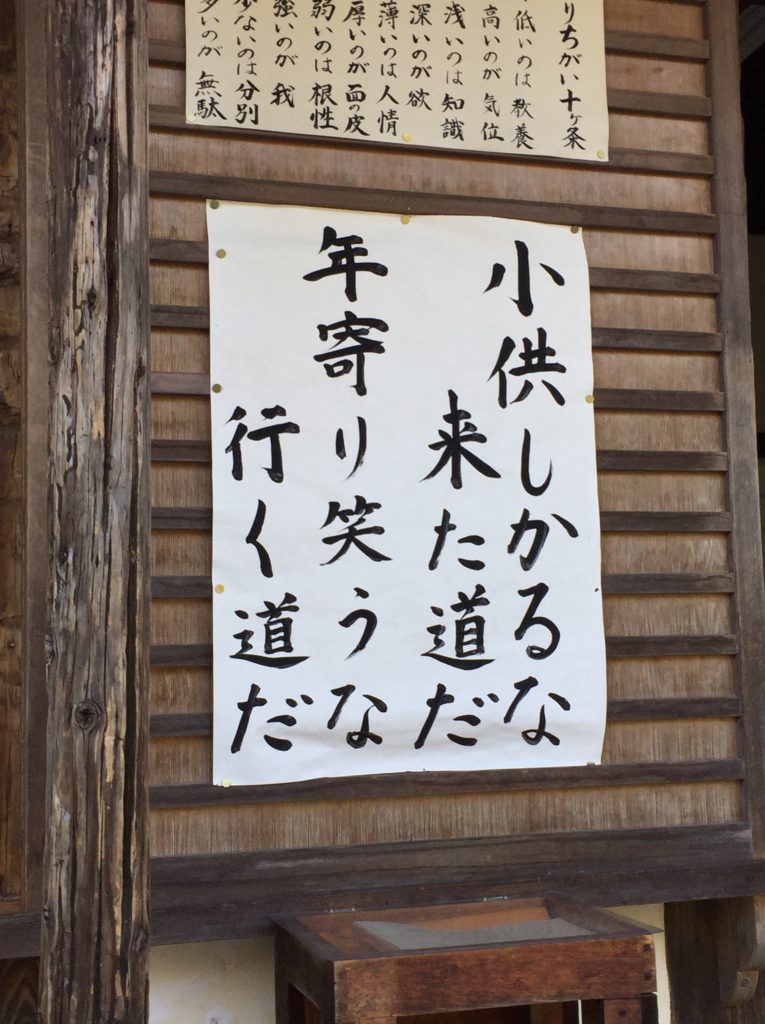 りちがい十ヶ条
低いのは 教養
高いのが 気位
浅いのは 知識
深いのが 欲
薄いのは 人情
厚いのが 面の皮
弱いのは 根性
強いのが 我
少ないのは 分別
多いのが 無駄
小供しかるな
来た道だ
年寄り笑うな
行く道だ